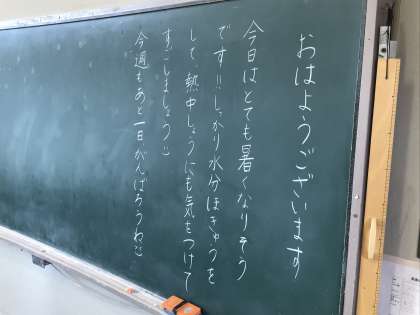 おはようございます
今日はとても暑くなりそう
です!!しっかり水分ほきゅうを
して、熱中しょうにも気をつけて
すごしましょう!!
今週もあと一日がんばろうね